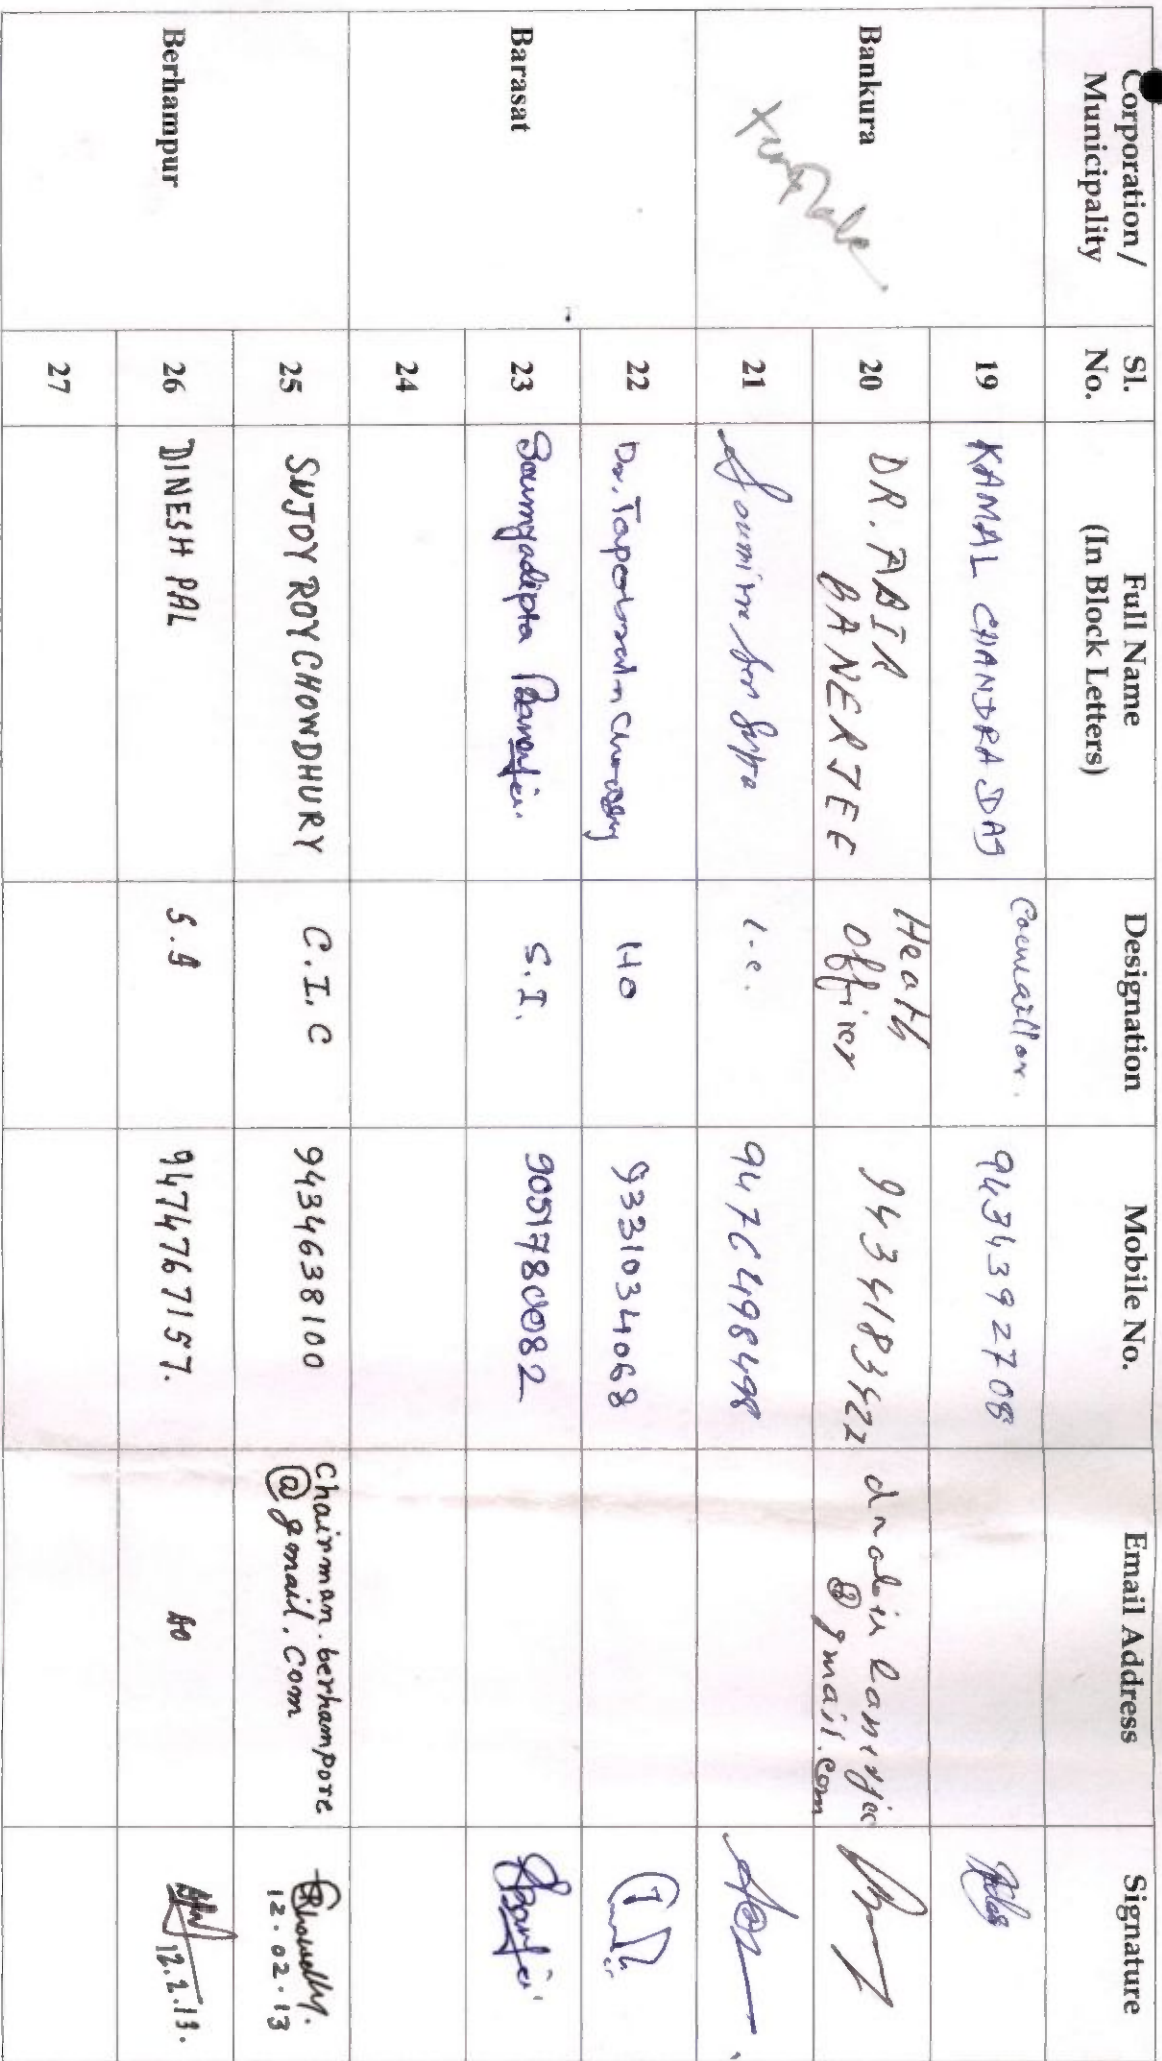 Corporation / Municipality Sl. No. Full Name (In Block Letters) Designation Mobile No. Email Address Signature
Bankura
19 KAMAL CHANDRA DAS Councillor. 9434392708
20 DR. ABIR BANERJEE Heath Officer 9434183422
@gmail.com
21 Soumitra Sen Gupta 9476498498
Barasat
22 Dr. HO 9331034068
23 Soumyadipta Banerjee. S.I. 9051780082
24
Berhampur
25 SUJOY ROY CHOWDHURY C.I.C 9434638100 Chairman.berhampore
@gmail.com
12.02.13
26 DINESH PAL 9474767157. 12.2.13.
27